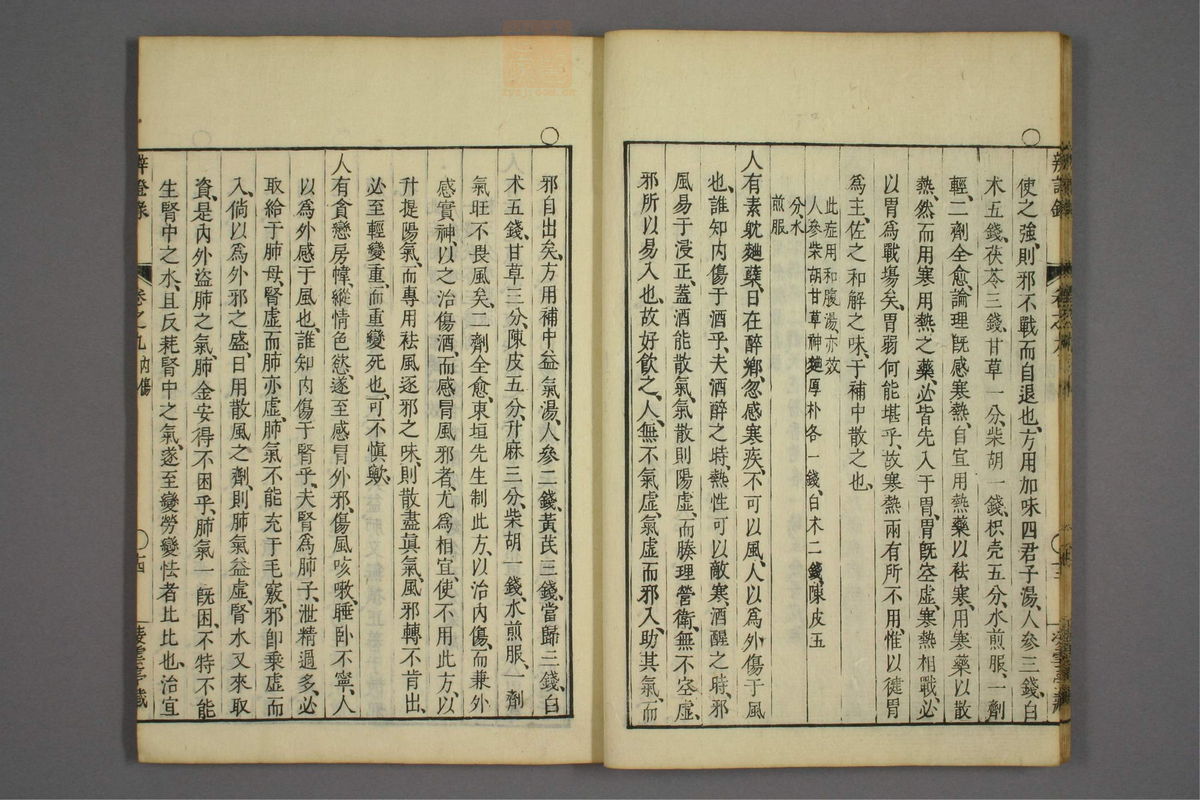 使之強、則邪不戰而自退也、方用加味四君子湯、人參三錢、白
术五錢、茯苓三錢、甘草一分、柴胡一錢、枳壳五分、水煎服、一劑
輕、二劑全愈、論理旣感寒熱、自宜用熱藥以祛寒、用寒藥以散
熱、然而用寒用熱之藥、必皆先入于胃、胃旣空虛、寒熱相戰、必
以胃爲戰塲矣、胃弱何能堪乎、故寒熱兩有所不用、惟以健胃
爲主、佐之和解之味、于補中散之也、
此症用和腹湯亦效
人參柴胡甘草神麯厚朴各一錢、白木二錢、陳皮五
分、水
煎服
人有素躭麯蘖、日在醉鄉、忽感寒疾、不可以風、人以爲外傷于風
也、誰知內傷于酒乎、夫酒醉之時、熱性可以敵寒、酒醒之時、邪
風易于浸正、蓋酒能散氣、氣散則陽虛、而腠理營衛、無不空虛、
邪所以易入也、故好飲之人、無不氣虛、氣虛而邪入、助其氣、而
辨證錄
邪自出矣、方用補中益氣湯、人參二錢、黃芪三錢、當歸三錢、白
术五錢、甘草三分、陳皮五分、升麻三分、柴胡一錢、水煎服、一劑
氣旺不畏風矣、二劑全愈、東垣先生制此方、以治內傷、而兼外
感實神、以之治傷酒、而感冒風邪者、尤爲相宜、使不用此方、以
升提陽氣、而專用祛風逐邪之味、則散盡眞氣、風邪轉不肯出、
必至輕變重、而重變死也、可不愼歟、
人有貪戀房幃、縱情色慾、遂至感冒外邪、傷風咳嗽、睡卧不寧、人
以爲外感于風也、誰知內傷于腎乎、夫腎爲肺子、泄精過多、必
取給于肺母、腎虛而肺亦虛、肺氣不能充于毛竅、邪卽乘虛而
入、倘以爲外邪之盛、日用散風之劑、則肺氣益虛、腎水又來取
資、是內外盜肺之氣、肺金安得不困乎、肺氣一旣困、不特不能
生腎中之水、且反耗腎中之氣、遂至變勞變怯者比比也、治宜
辨證錄
卷之九 內傷
十四